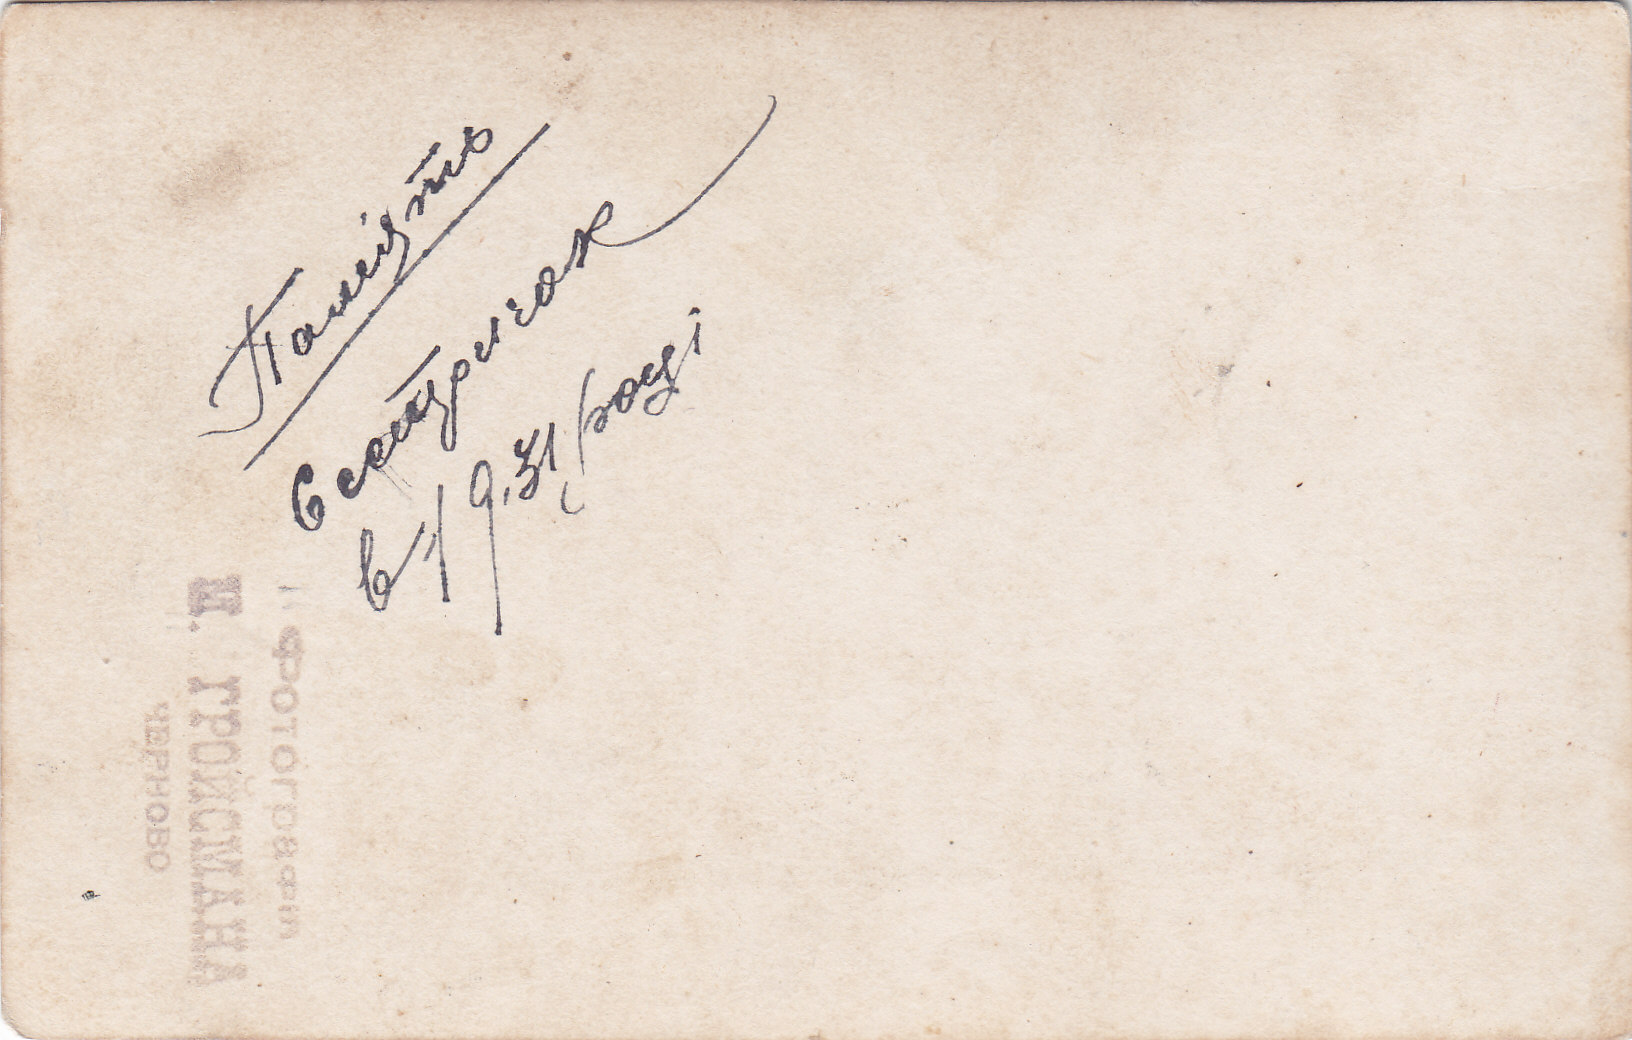 Памʼять
Сестричок
в 1931 році
Фотографія
Ш. ГРОЙСМАНА
ЧЕРНОВО